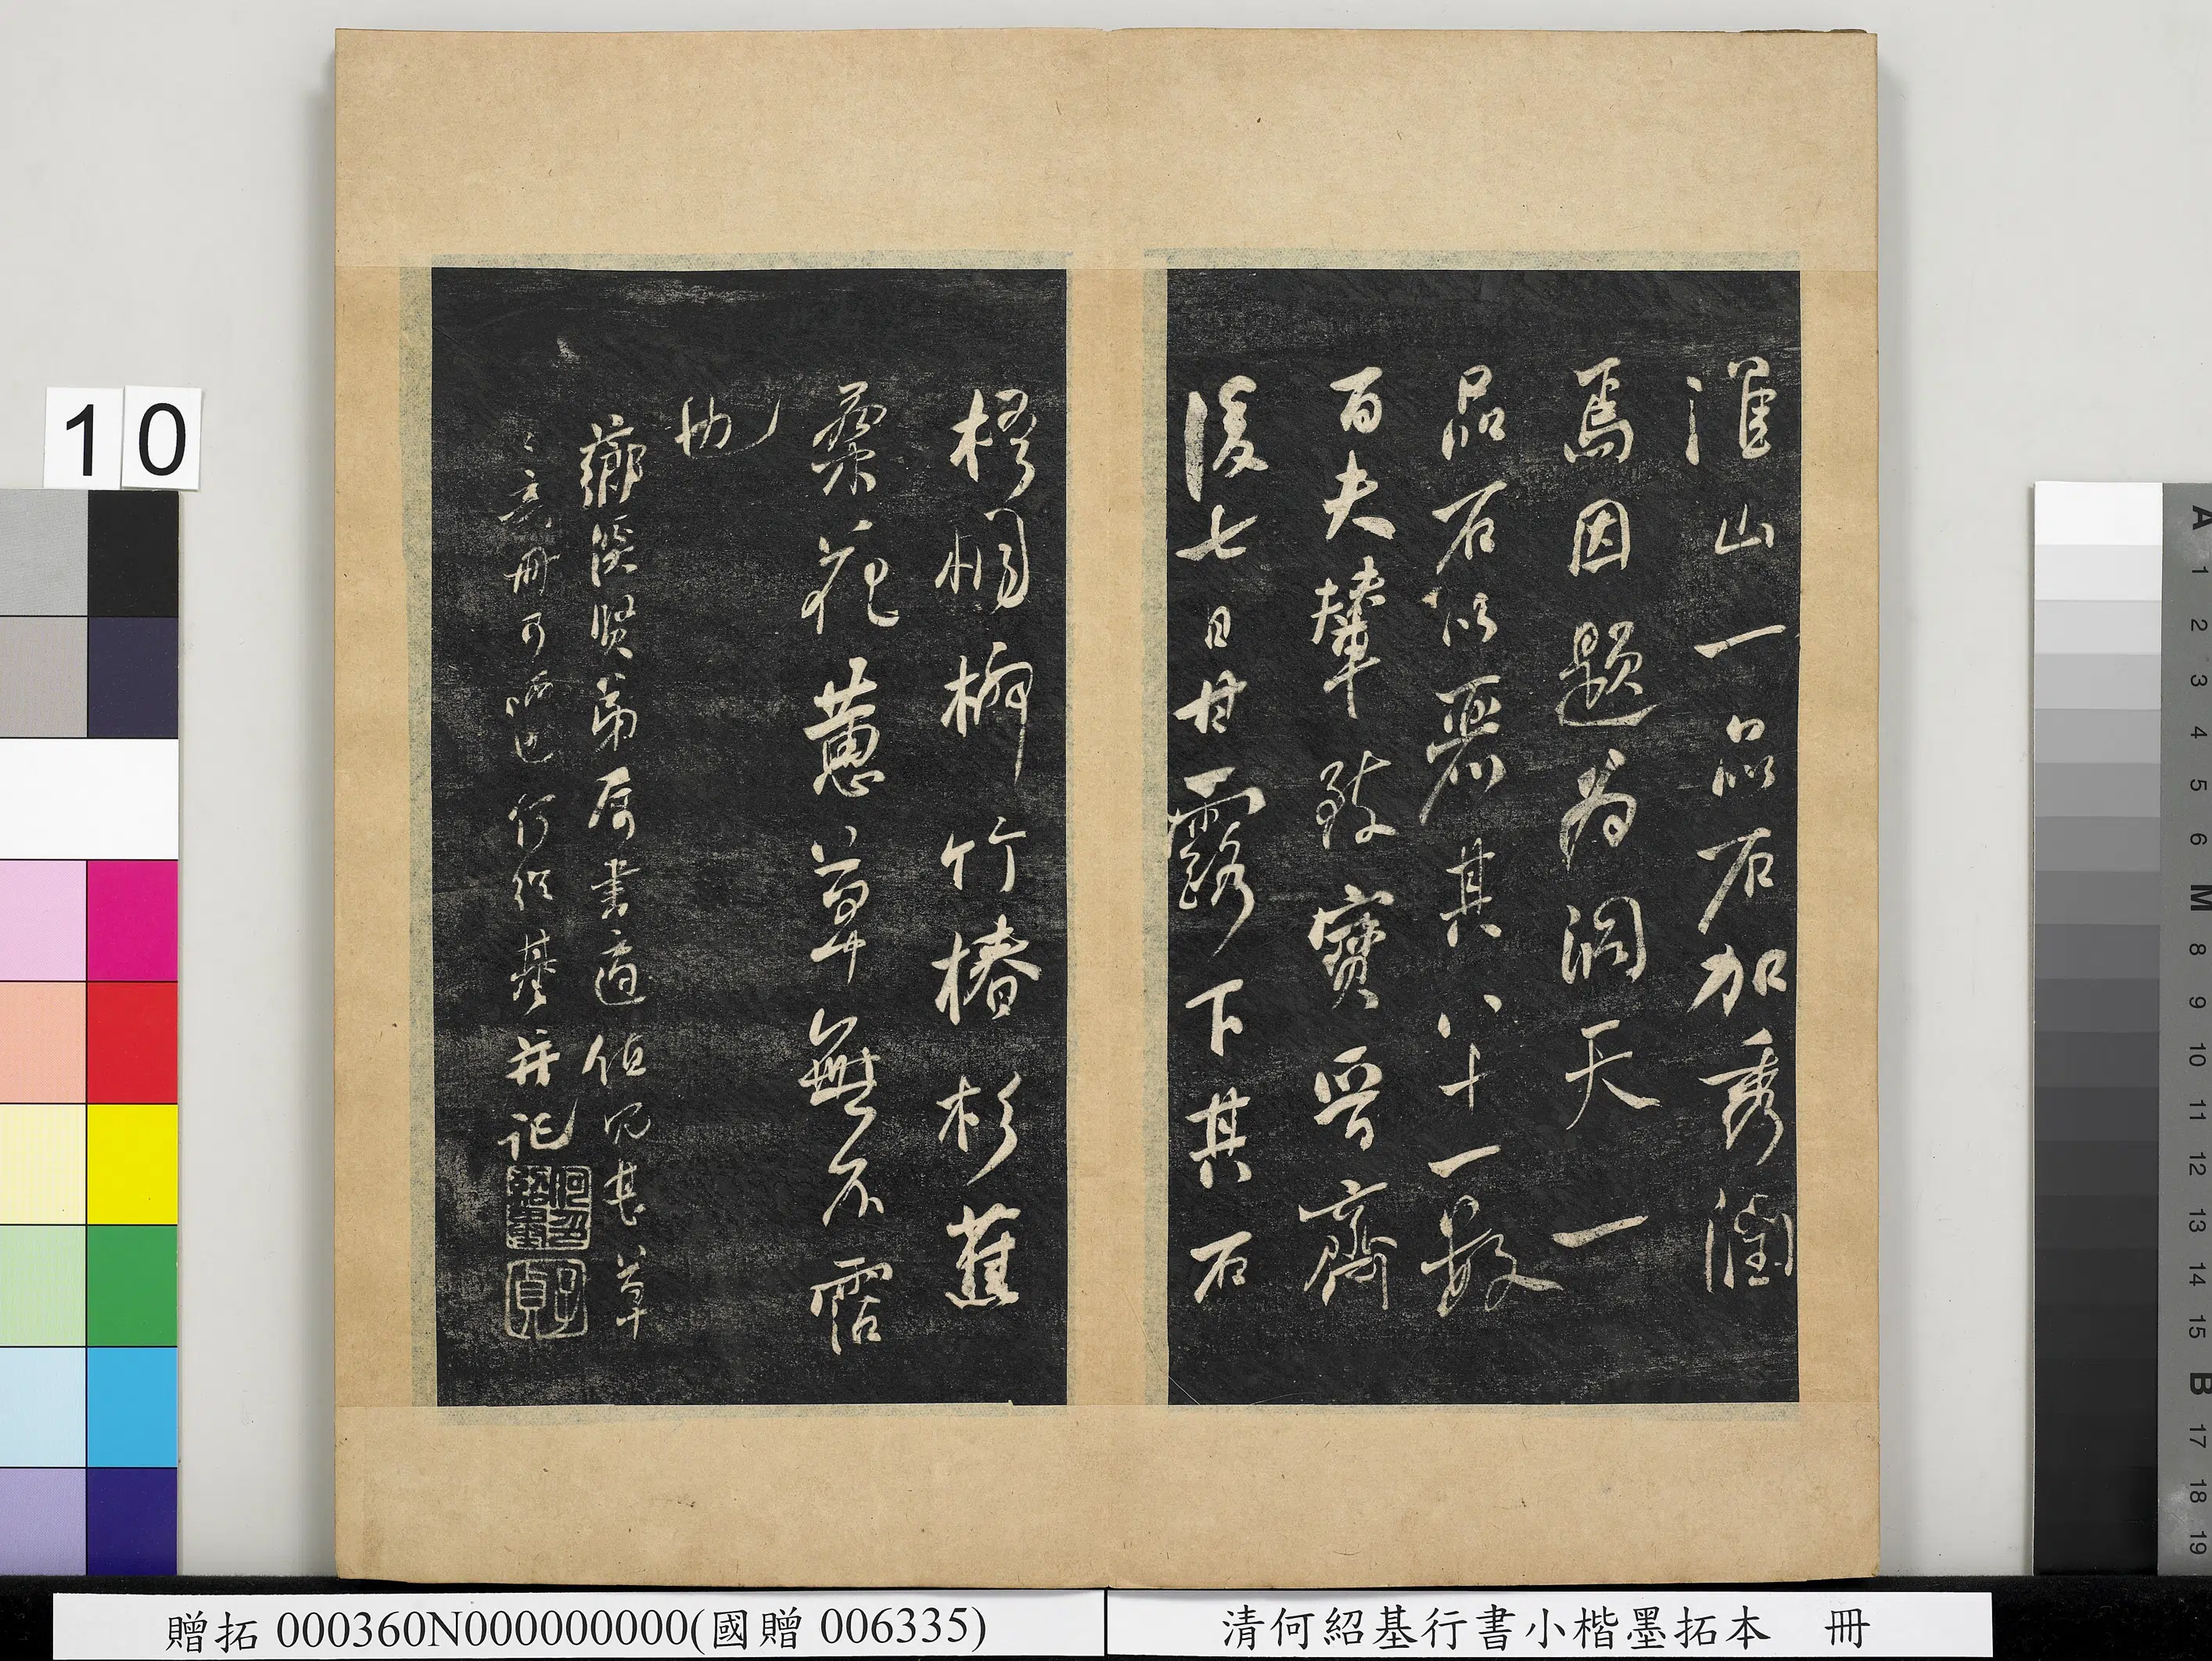 淮山一品石加秀潤
焉因題為洞天一
品石以丽其八十一數
百夫輦致寶晉齋
後七日甘露下其石
梧桐柳竹椿杉蕉
蘂花蕙草無不霑
也
薌溪賢弟屬書適值冗甚草
草
冊可哂也何紹基并記
何紹基
子貞
10
贈拓 000360N000000000(國贈 006335)
清何紹基行書小楷墨拓本 冊
A
1
2
3
4
5
6
M
8
9
10
11
12
13
14
15
B
17
18
19